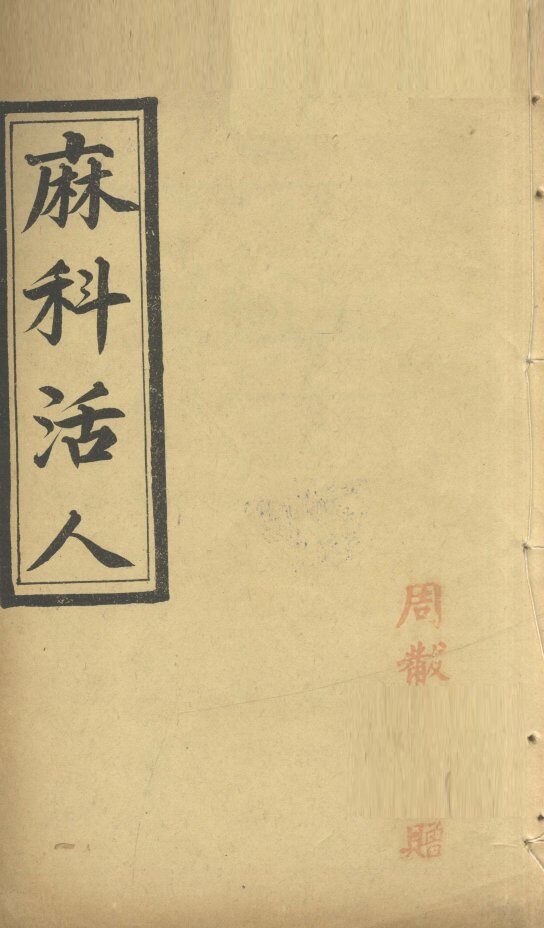 麻科活人
周黻
贈